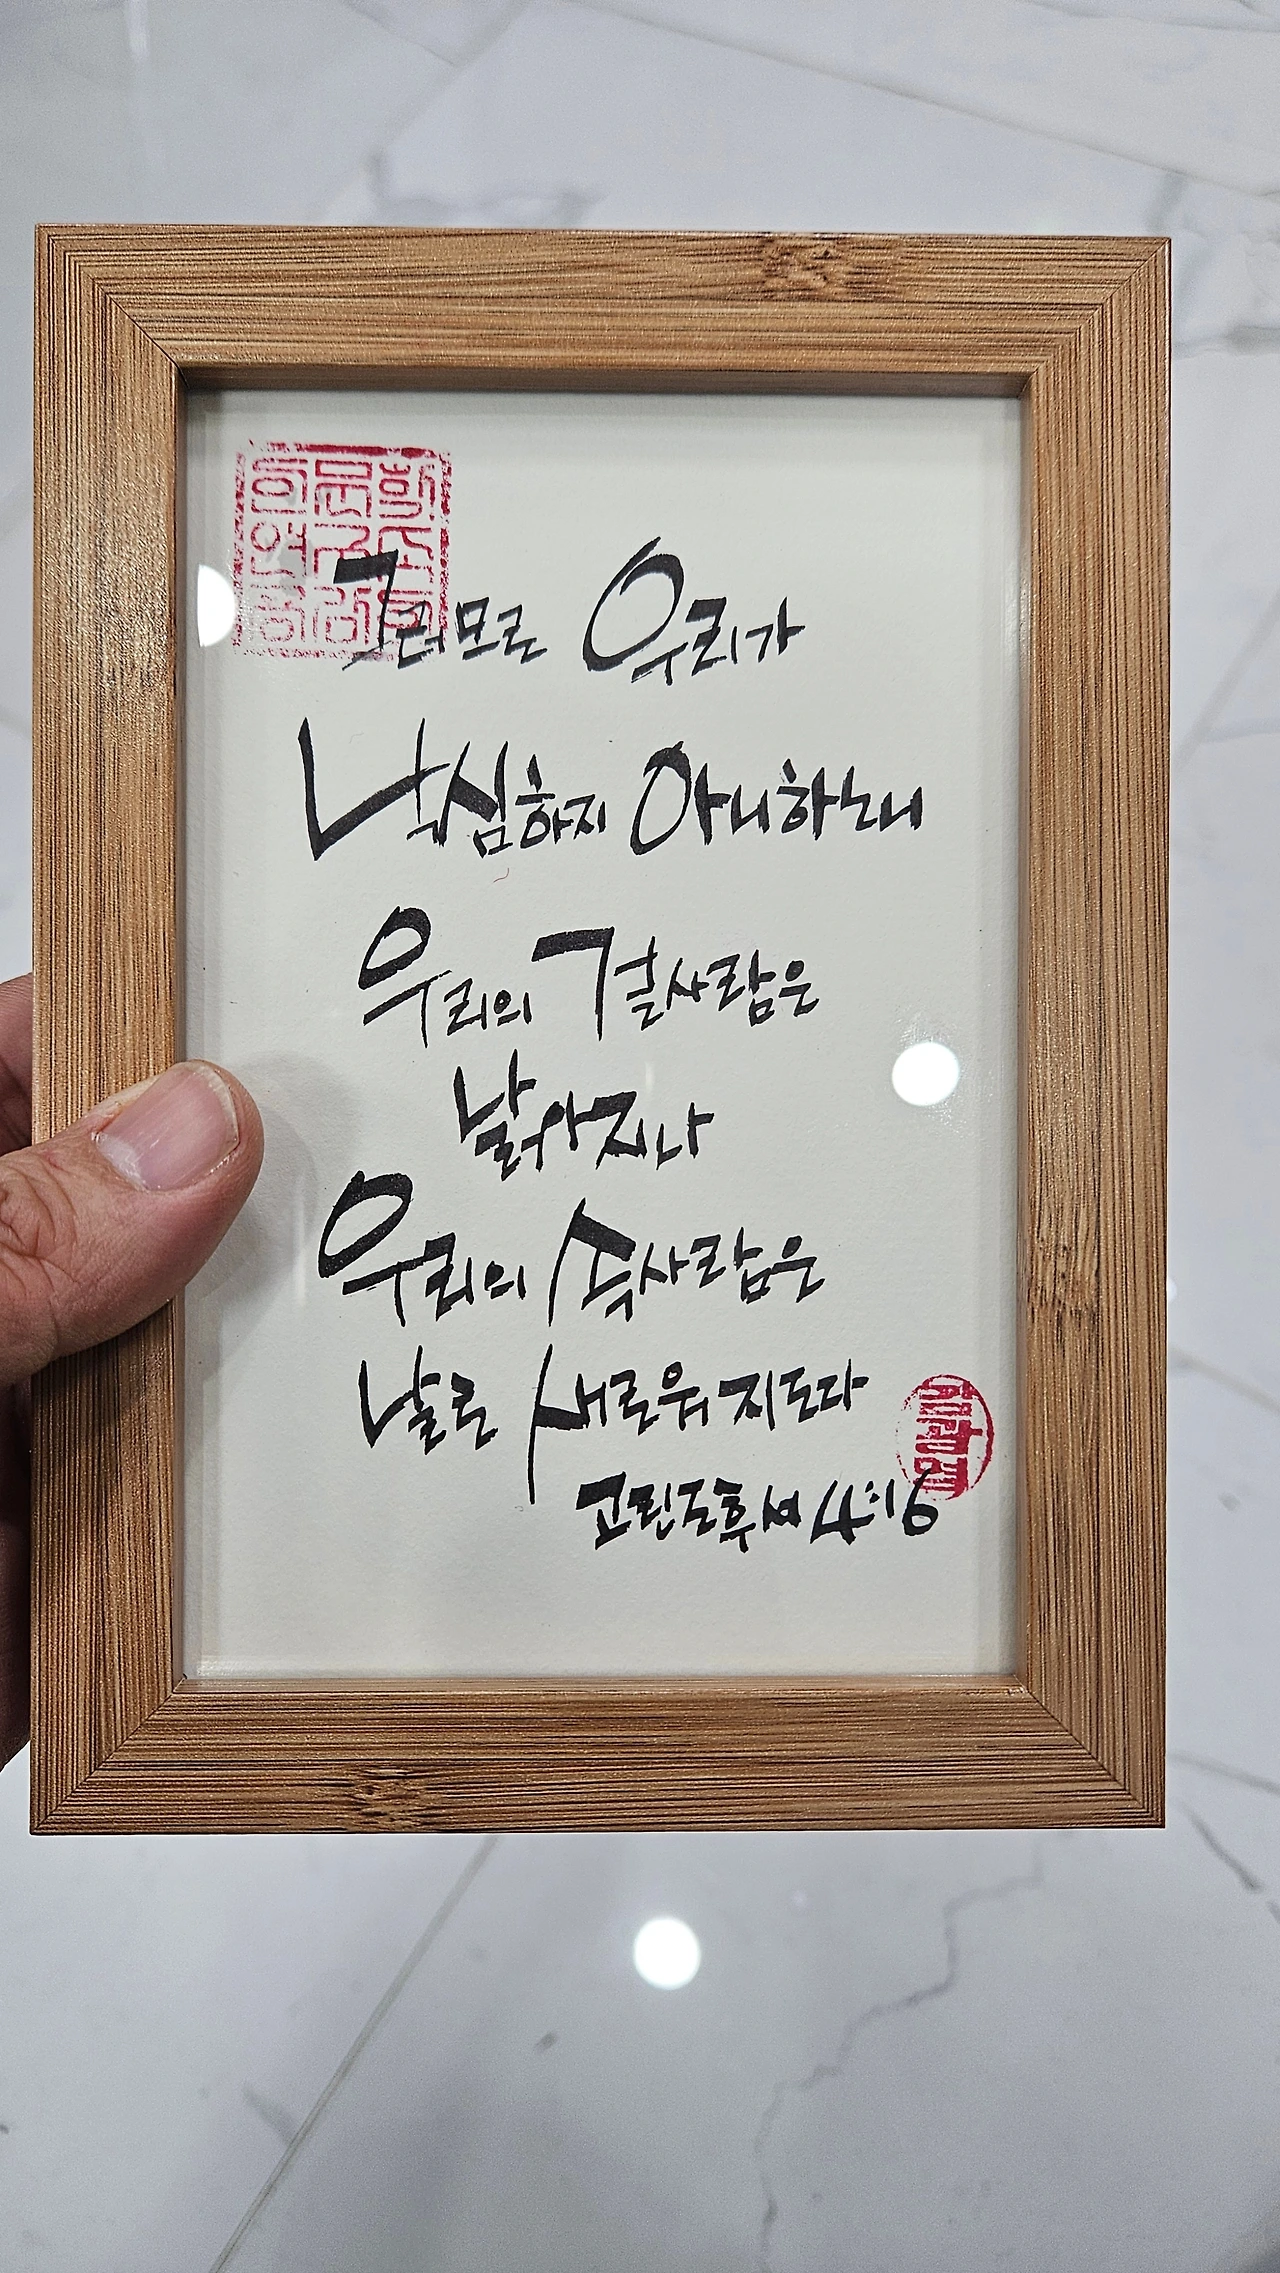 그러므로 우리가
낙심하지 아니하노니
우리의 겉사람은
낡아지나
우리의 속사람은
날로 새로워지도다
고린도후서 4:16